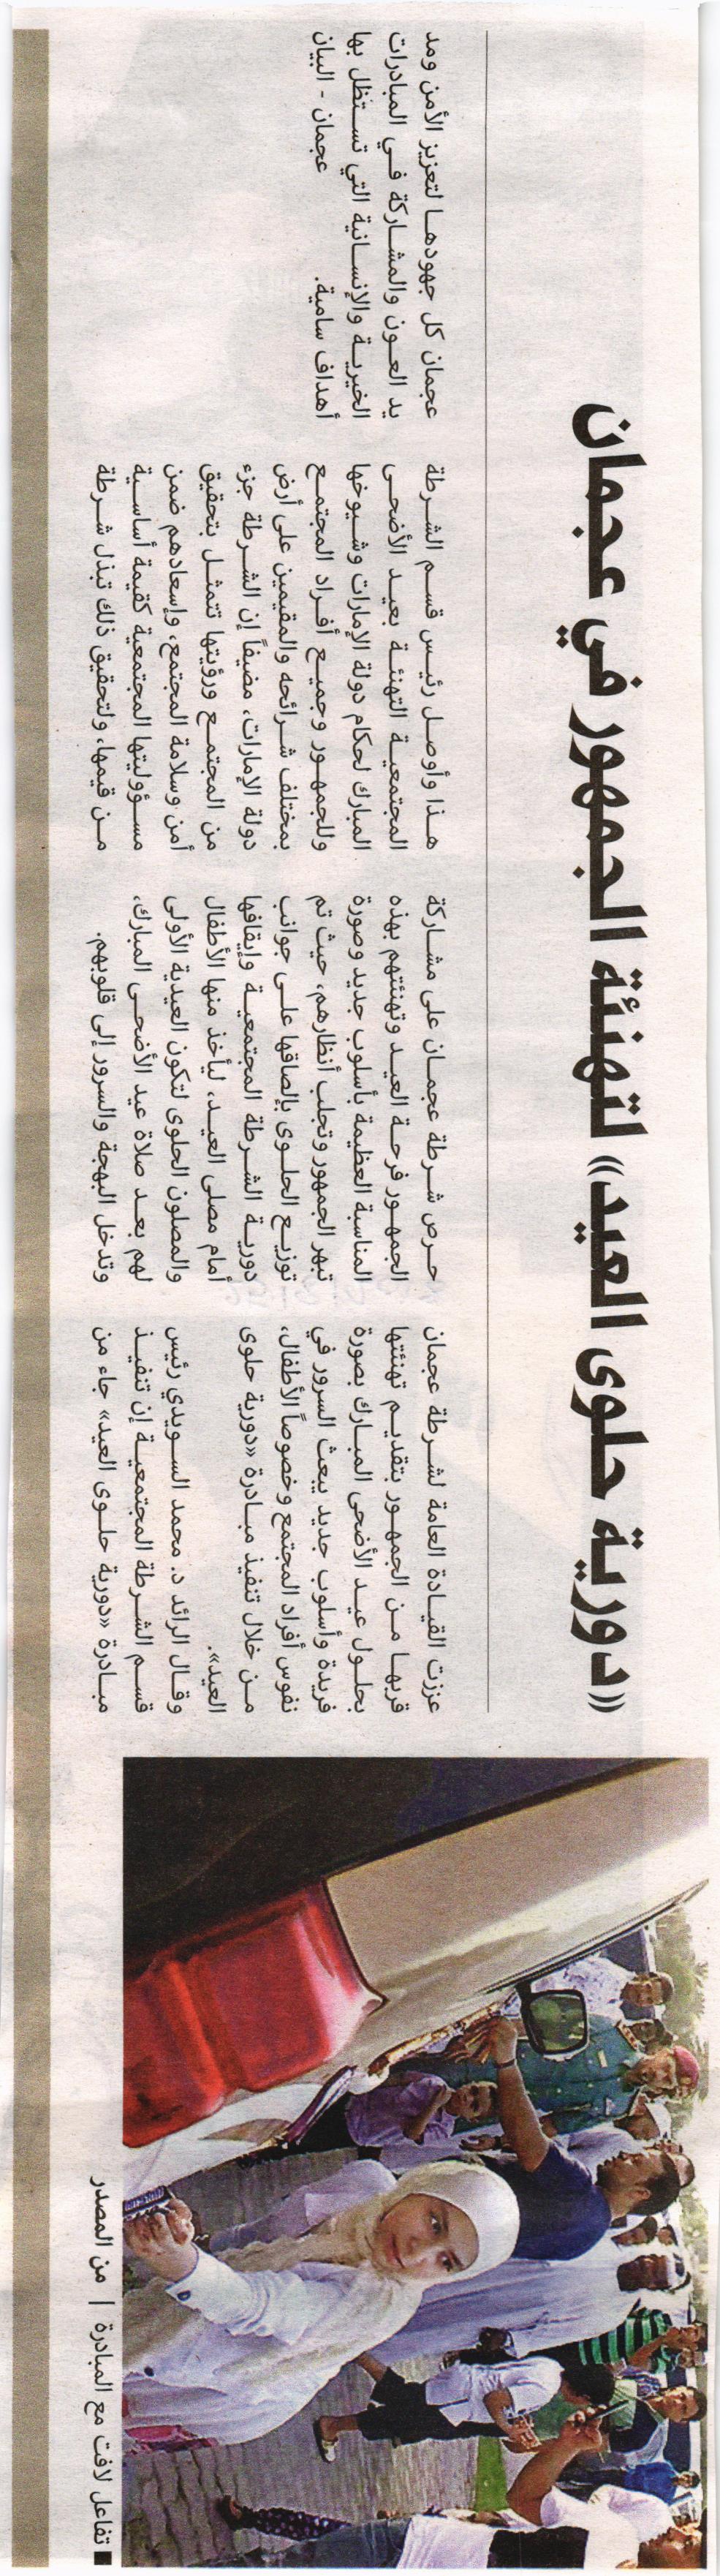 «دورية حلوى العيد» لتهنئة الجمهور في عجمان
عززت القيادة العامة لشرطة عجمان
قربها من الجمهور بتقديم تهنئتها
بحلول عيد الأضحى المبارك بصورة
فريدة وأسلوب جديد يبعث السرور في
نفوس أفراد المجتمع وخصوصاً الأطفال،
من خلال تنفيذ مبادرة «دورية حلوى
العيد».
وقال الرائد د. محمد السويدي رئيس
قسم الشرطة المجتمعية إن تنفيذ
مبادرة «دورية حلوى العيد» جاء من
حرص شرطة عجمان على مشاركة
الجمهور فرحة العيد وتهنئتهم بهذه
المناسبة العظيمة بأسلوب جديد وصورة
تبهر الجمهور وتجلب أنظارهم، حيث تم
توزيع الحلوى بإلصاقها على جوانب
دورية الشرطة المجتمعية وإيقافها
أمام مصلى العيد، ليأخذ منها الأطفال
والمصلون الحلوى لتكون العيدية الأولى
لهم بعد صلاة عيد الأضحى المبارك،
وتدخل البهجة والسرور إلى قلوبهم.
هذا وأوصل رئيس قسم الشرطة
المجتمعية التهنئة بعيد الأضحى
المبارك لحكام دولة الإمارات وشيوخها
وللجمهور وجميع أفراد المجتمع
بمختلف شرائحه والمقيمين على أرض
دولة الإمارات، مضيفاً إن الشرطة جزء
من المجتمع ورؤيتها تتمثل بتحقيق
أمن وسلامة المجتمع، وإسعادهم ضمن
مسؤوليتها المجتمعية كقيمة أساسية
من قيمها، ولتحقيق ذلك تبذل شرطة
عجمان كل جهودها لتعزيز الأمن ومد
يد العون والمشاركة في المبادرات
الخيرية والإنسانية التي تستظل بها
أهداف سامية.
عجمان - البيان
■ تفاعل لافت مع المبادرة | من المصدر